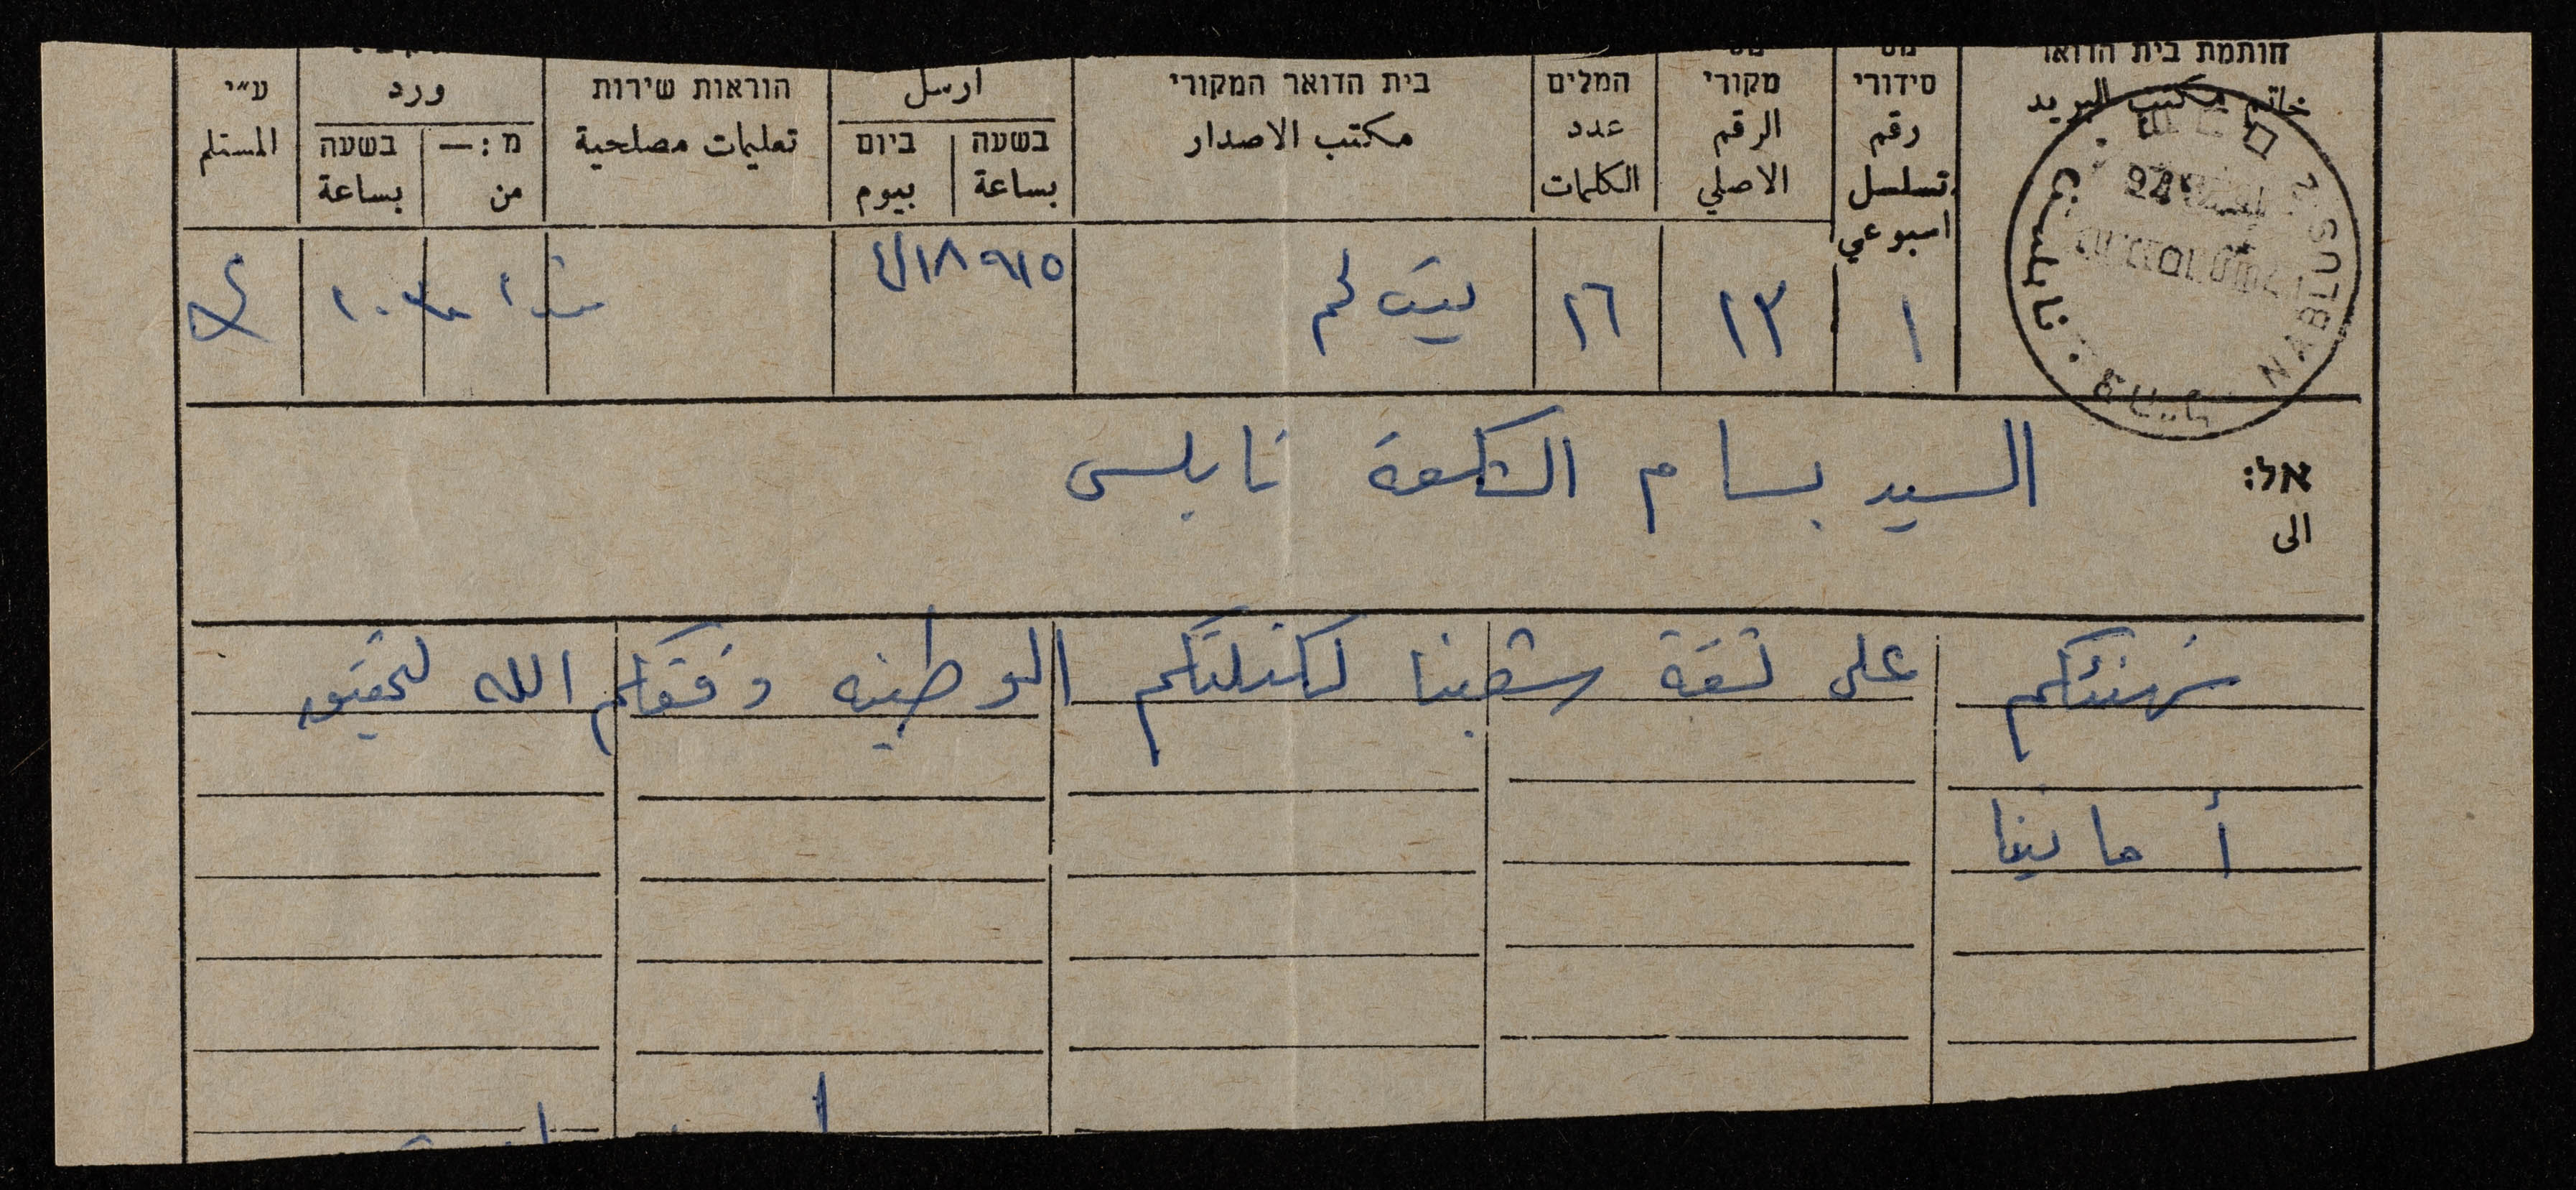 חותמת בית הדואר
خاتم مكتب البريد
סידורי
رقم
تسلسل
اسبوعي
מקורי
الرقم
الاصلي
המלים
عدد
الكلمات
בית הדואר המקורי
مكتب الاصدار
ارسل
בשעה
بساعة
ביום
بيوم
הוראות שירות
تعليمات مصلحية
ورد
מ:—
من
בשעה
بساعة
ע״י
المستلم
NABLUS
نابلس
١
١٣
١٦
بيت لحم
٩١٥
אל:
الى
السيد بسام الشكعة نابلس
نهنئكم على ثقة شعبنا لكتلتكم الوطنيه وفقكم الله لتحقيق
أمانينا